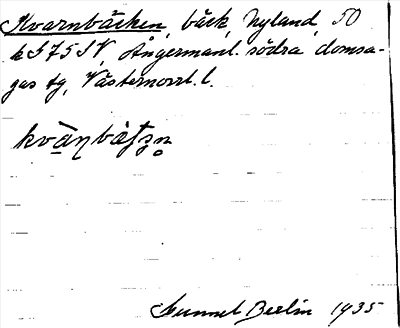 Kvarnbäcken, bäck, Nyland, 50
k S 75 SV, Ångermanl. södra domsa-
gas tg, Västernorrl. l.
Gunnel Berlin 1935